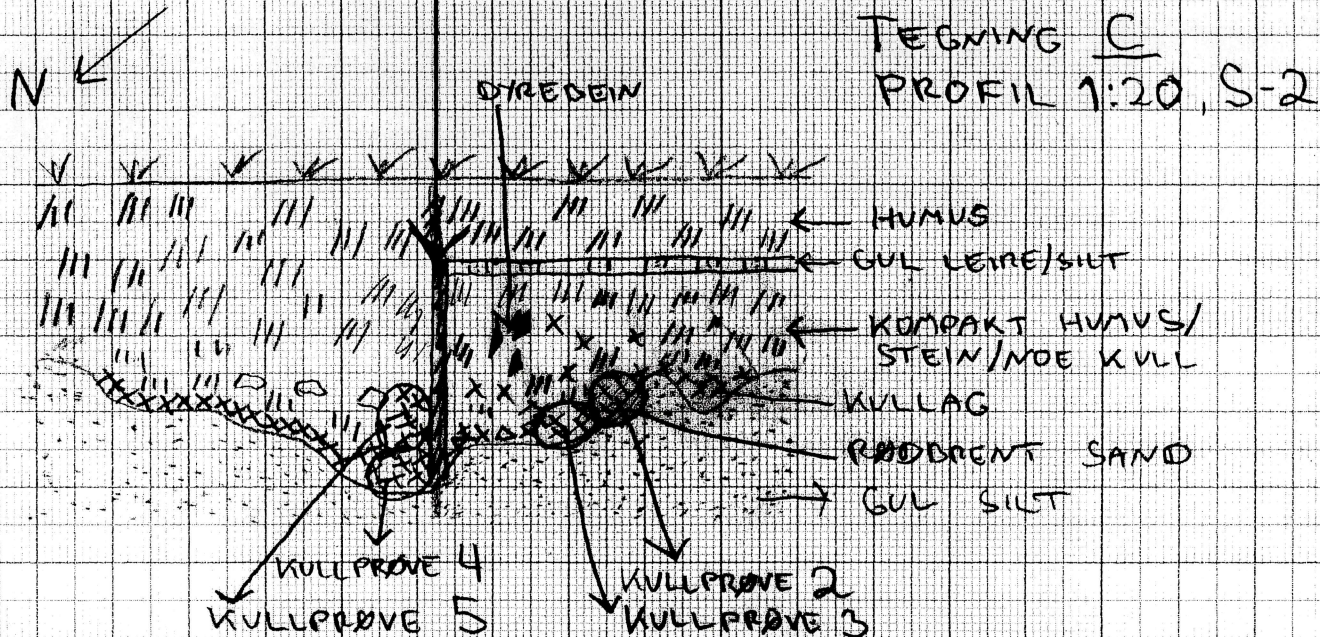 TEGNING C
PROFIL 1:20, S-2
N
DYREBEIN
HUMUS
GUL LEIRE/SILT
KOMPAKT HUMUS/
STEIN/NOE KULL
KULLAG
RØDBRENT SAND
GUL SILT
KULLPRØVE 4
KULLPRØVE 5
KULLPRØVE 2
KULLPRØVE 3